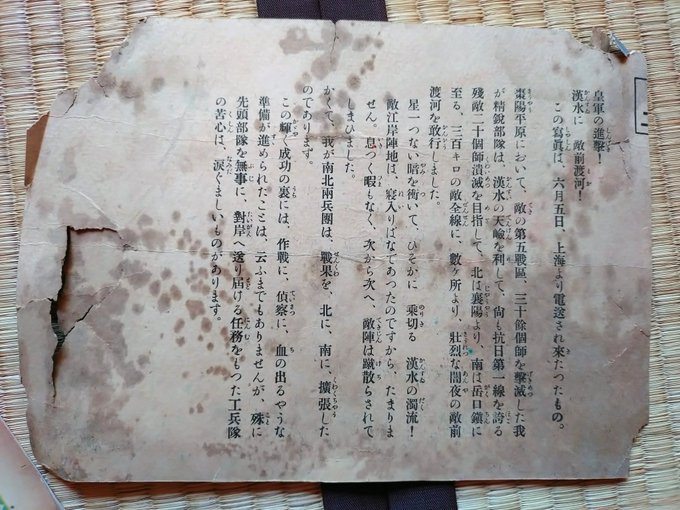 皇軍の進擊！
漢水に　敵前渡河！
この寫眞は、六月五日、上海より電送され來たつたもの。
棗陽平原において、敵の第五戰區、三十餘個師を擊滅した我
が精銳部隊は、漢水の天嶮を利して、尙も抗日第一線を誇る
殘敵二十個師潰滅を目指して、北は襄陽より、南は岳口鎭に
至る、三百キロの敵全線に、數ヶ所より、壯烈な闇夜の敵前
渡河を敢行しました。
星一つない暗を衝いて、ひそかに　乘切る　漢水の濁流！
敵江岸陣地は、寢入りばなであつたのですから、たまりま
せん。息つく暇もなく、次から次へ、敵陣は蹴散らされて
しまひました。
かくて、我が南北兩兵團は、戰果を、北に、南に、擴張した
のであります。
この輝く成功の裏には、作戰に、偵察に、血の出るやうな
準備が進められたことは、云ふまでもありませんが、殊に
先頭部隊を無事に、對岸へ送り屆ける任務をもつた工兵隊
の苦心は、淚ぐましいものがあります。